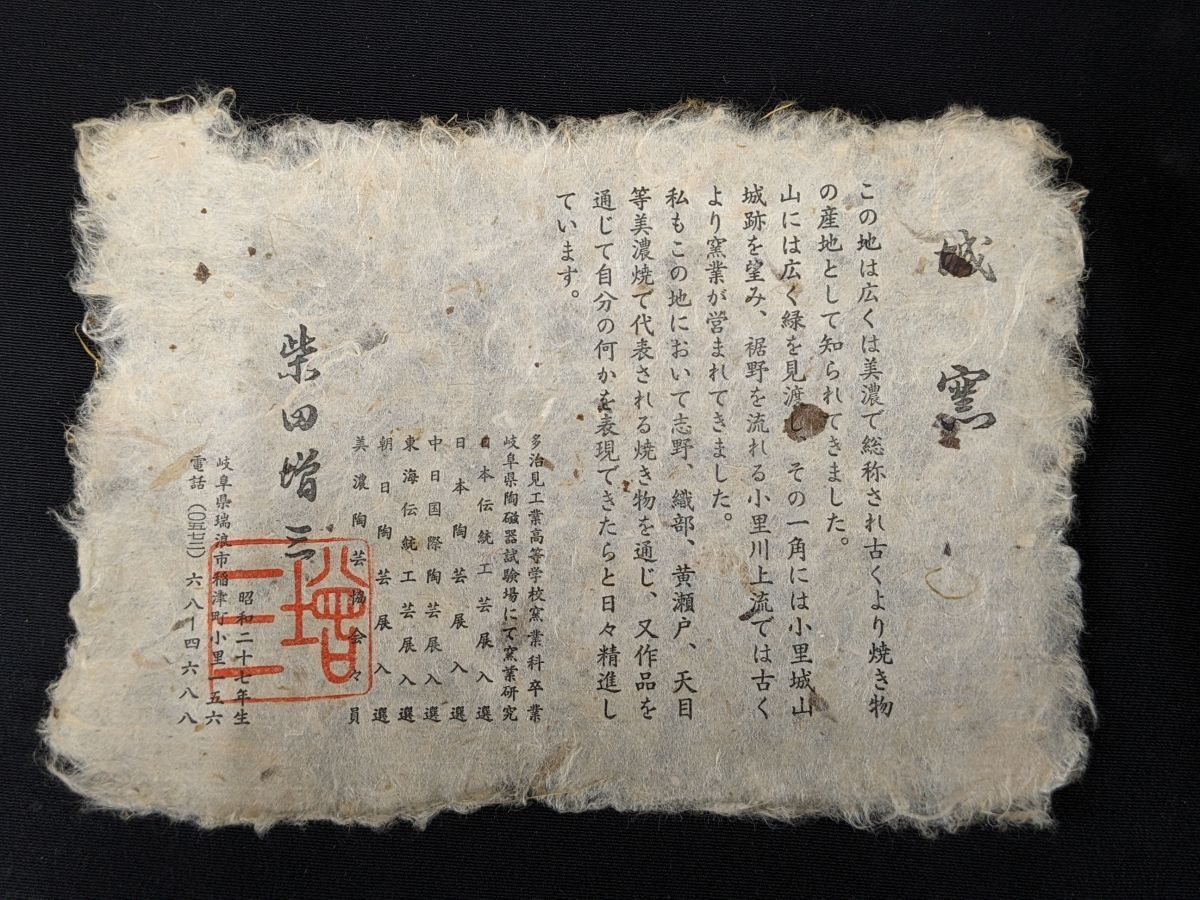 城窯
この地は広くは美濃で総称され古くより焼き物
の産地として知られてきました。
山には広く緑を見渡し、その一角には小里城山
城跡を望み、裾野を流れる小里川上流では古く
より窯業が営まれてきました。
私もこの地において志野、織部、黄瀬戸、天目
等美濃焼で代表される焼き物を通じ、又作品を
通じて自分の何かを表現できたらと日々精進し
ています。
多治見工業高等学校窯業科卒業
岐阜県陶磁器試験場にて窯業研究
日本伝統工芸展入選
日本陶芸展入選
中日国際陶芸展入選
東海伝統工芸展入選
朝日陶芸展入選
美濃陶芸協会々員
柴田増三
昭和二十七年生
岐阜県瑞浪市稲津町小里一五六
電話(〇五七二)六八ー四六八八